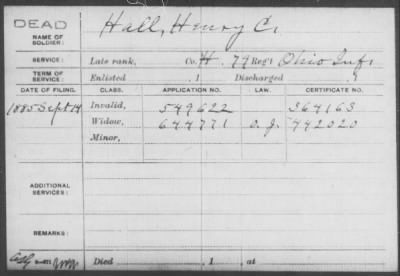 DEAD
NAME OF SOLDIER: Hall, Henry C.
SERVICE: Late rank, Co. H. 79 Reg't Ohio Inf.
TERM OF SERVICE: Enlisted , 1 Discharged , 1
DATE OF FILING. CLASS. APPLICATION NO. LAW. CERTIFICATE NO.
1885 Sept 14 Invalid, 549622 364163
Widow, 644771 442020
Minor,
ADDITIONAL SERVICES:
REMARKS:
Died , 1 , at